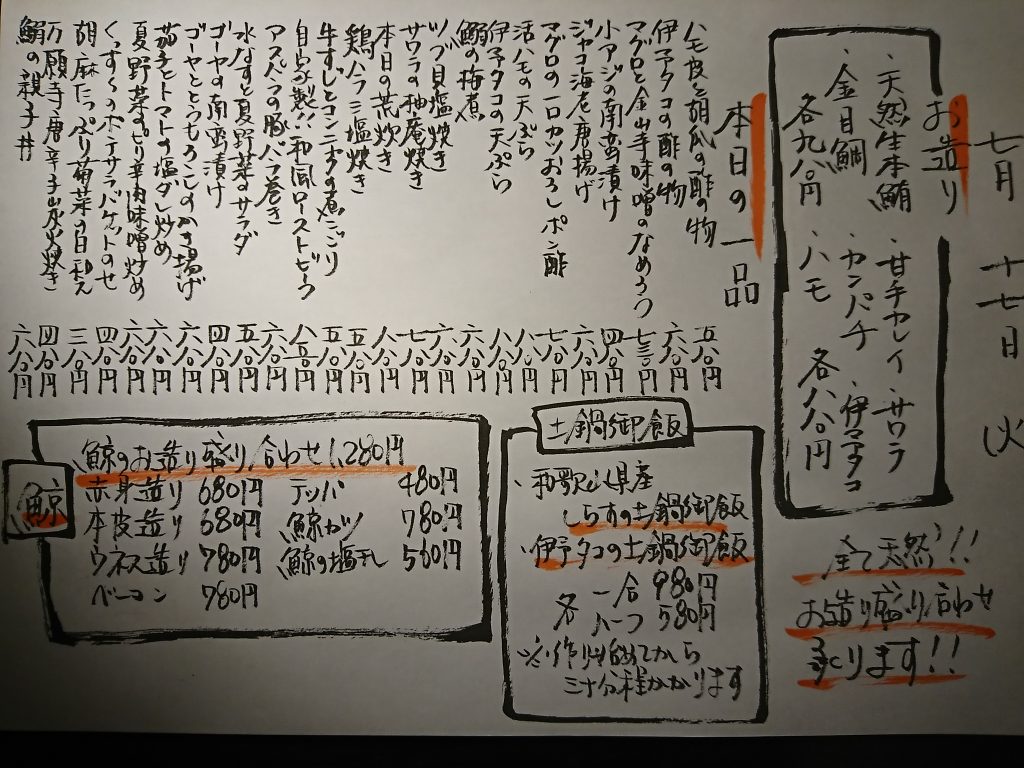 七月 十七日 火
お造り
・天然生本鮪 ・甘手カレイ ・サワラ
・金目鯛 ・カンパチ ・伊予タコ
各九八〇円 ・ハモ 各八八〇円
全て天然!!
お造り盛り合わせ
承ります!!
本日の一品
ハモ皮と胡瓜の酢の物 五八〇円
伊予タコの酢の物 六八〇円
マグロと金山寺味噌のなめろう 七三〇円
小アジの南蛮漬け 四八〇円
ジャコ海老唐揚げ 六八〇円
マグロの一口カツおろしポン酢 七八〇円
活ハモの天ぷら 八八〇円
伊予タコの天ぷら 八八〇円
鰯の梅煮 六八〇円
ツブ貝塩焼き 六八〇円
サワラの柚庵焼き 七八〇円
本日の荒炊き 八八〇円
鶏ハラミ塩焼き 五八〇円
牛すじとコンニャクの煮こごり 五八〇円
自家製!!和風ローストビーフ 八八〇円
アスパラの豚バラ巻き 六八〇円
水なすと夏野菜のサラダ 五八〇円
ゴーヤの南蛮漬け 四八〇円
ゴーヤととうもろこしのかき揚げ 六八〇円
茄子とトマトの塩ダレ炒め 六八〇円
夏野菜のピリ辛肉味噌炒め 六八〇円
くんすうのポテサラバケットのせ 四八〇円
胡麻たっぷり菊菜の白和え 三八〇円
万願寺唐辛子山水焼き 四八〇円
鯛の親子丼 六八〇円
土鍋御飯
・和歌山県産
しらすの土鍋御飯
・伊予タコの土鍋御飯
各 一合 980円
ハーフ 580円
※作り始めてから
三十分程かかります
鯨
鯨のお造り盛り合わせ 1,280円
赤身造り 680円 テッパ 480円
本皮造り 680円 鯨カツ 780円
ウネス造り 780円 鯨の塩干し 560円
ベーコン 780円